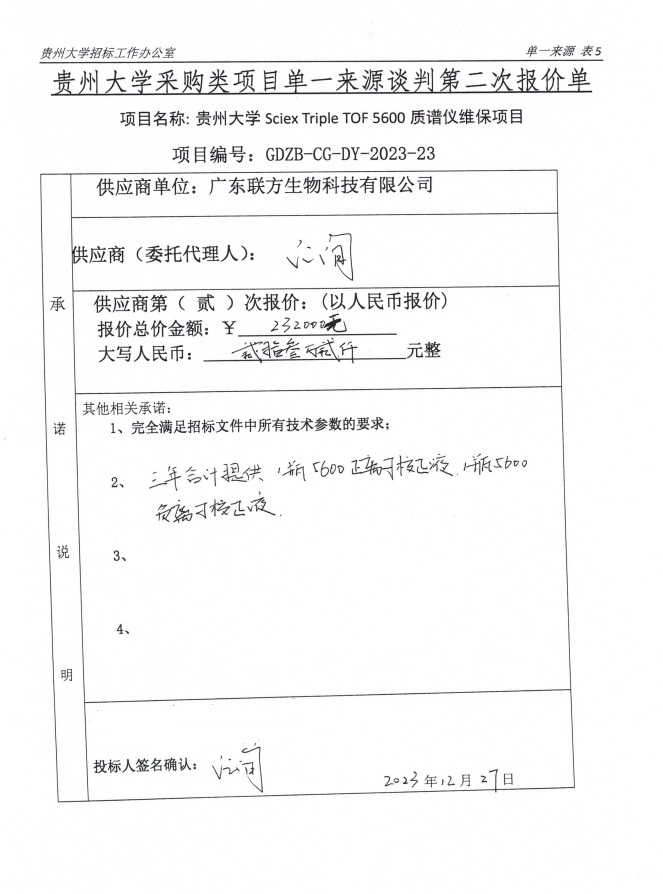 贵州大学招标工作办公室 单一来源 表5
贵州大学采购类项目单一来源谈判第二次报价单
项目名称: 贵州大学 Sciex Triple TOF 5600 质谱仪维保项目
项目编号: GDZB-CG-DY-2023-23
供应商单位: 广东联方生物科技有限公司
供应商（委托代理人）:
承 供应商第（ 贰 ）次报价:（以人民币报价）
报价总价金额: ￥ 232000元
大写人民币: 贰拾叁万贰仟 元整
其他相关承诺:
诺 1、完全满足招标文件中所有技术参数的要求;
2、三年合计提供 1瓶5600正离子校正液, 1瓶5600
负离子校正液.
说 3、
4、
明
投标人签名确认:
2023 年 12 月 27 日